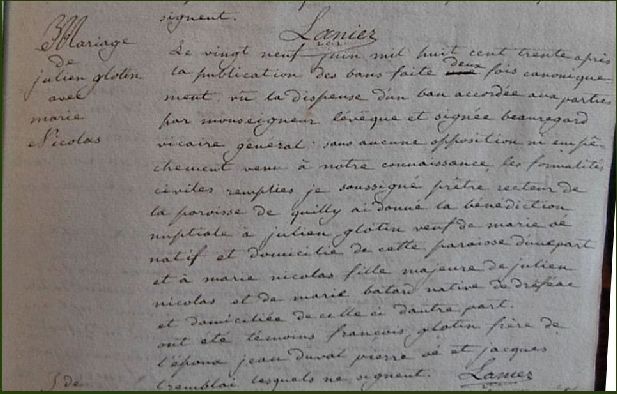 signent.
Lanier
Mariage
de
julien glotin
avec
marie
Nicolas
Le vingt neuf juin mil huit cent trente après
la publication des bans faite deux fois canonique-
ment. vu la dispense d'un ban accordée aux parties
par monseigneur lévêque et signée beauregard
vicaire général: sans aucune opposition ni empê-
chement venu à notre connaissance, les formalités
civiles remplies je soussigné prêtre recteur de
la paroisse de quilly ai donné la bénédiction
nuptiale à julien glotin veuf de marie oé
natif et domicilié de cette paroisse d'une part
et à marie nicolas fille majeure de julien
nicolas et de marie batard native de dréféac
et domiciliée de celle ci d'autre part.
ont été témoins francois glotin frère de
l'époux jean duval pierre oé et jacques
tremblai lesquels ne signent. Lanier
de